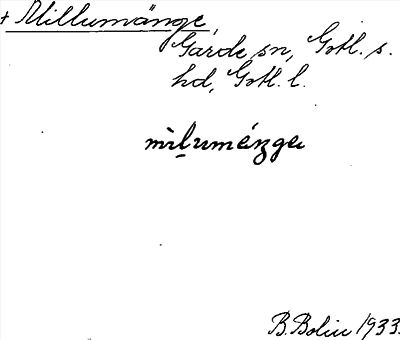 + Millumänge,
Garde sn, Gotl. s.
hd, Gotl. l.
mìluménge
B. Bolin 1933.